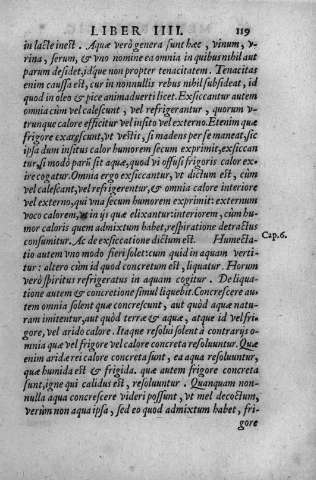 LIBER IIII. 119
in lacte inest. Aquæ verò genera sunt hæc, vinum, v-
rina, serum, & vno nomine ea omnia in quibus nihil aut
parum desidet, idque non propter tenacitatem. Tenacitas
enim caussa est, cur in nonnullis rebus nihil subsideat, id
quod in oleo & pice animaduerti licet. Exsiccantur autem
omnia cùm vel calescunt, vel refrigerantur, quorum v-
trunque calore efficitur vel insito vel externo. Etenim quæ
frigore exarescunt, vt vestis, si madens per se maneat, sic
ipsa dum insitus calor humorem secum exprimit, exsiccan
tur, si modò parùm sit aquæ, quod vi offusi frigoris calor ex-
ire cogatur. Omnia ergo exsiccantur, vt dictum est, cùm
vel calescant, vel refrigerentur, & omnia calore interiore
vel externo, qui vna secum humorem exprimit: externum
voco calorem, vt in ijs quæ elixantur: interiorem, cùm hu-
mor caloris quem admixtum habet, respiratione detractus
consumitur. Ac de exsiccatione dictum est. Humecta-
Cap. 6.
tio autem vno modo fieri solet: cum quid in aquam verti-
tur: altero cùm id quod concretum est, liquatur. Horum
verò spiritus refrigeratus in aquam cogitur. De liqua-
tione autem & concretione simul liquebit. Concrescere au-
tem omnia solent quæ concrescunt, aut quòd aquæ natu-
ram imitentur, aut quòd terræ & aquæ, atque id vel fri-
gore, vel arido calore. Itaque resolui solent à contrarijs o-
mnia quæ vel frigore vel calore concreta resoluuntur. Quæ
enim arida rei calore concreta sunt, ea aqua resoluuntur,
quæ humida est & frigida. quæ autem frigore concreta
sunt, igne qui calidus est, resoluuntur. Quanquam non-
nulla aqua concrescere videri possunt, vt mel decoctum,
verùm non aqua ipsa, sed eo quod admixtum habet, fri-
gore